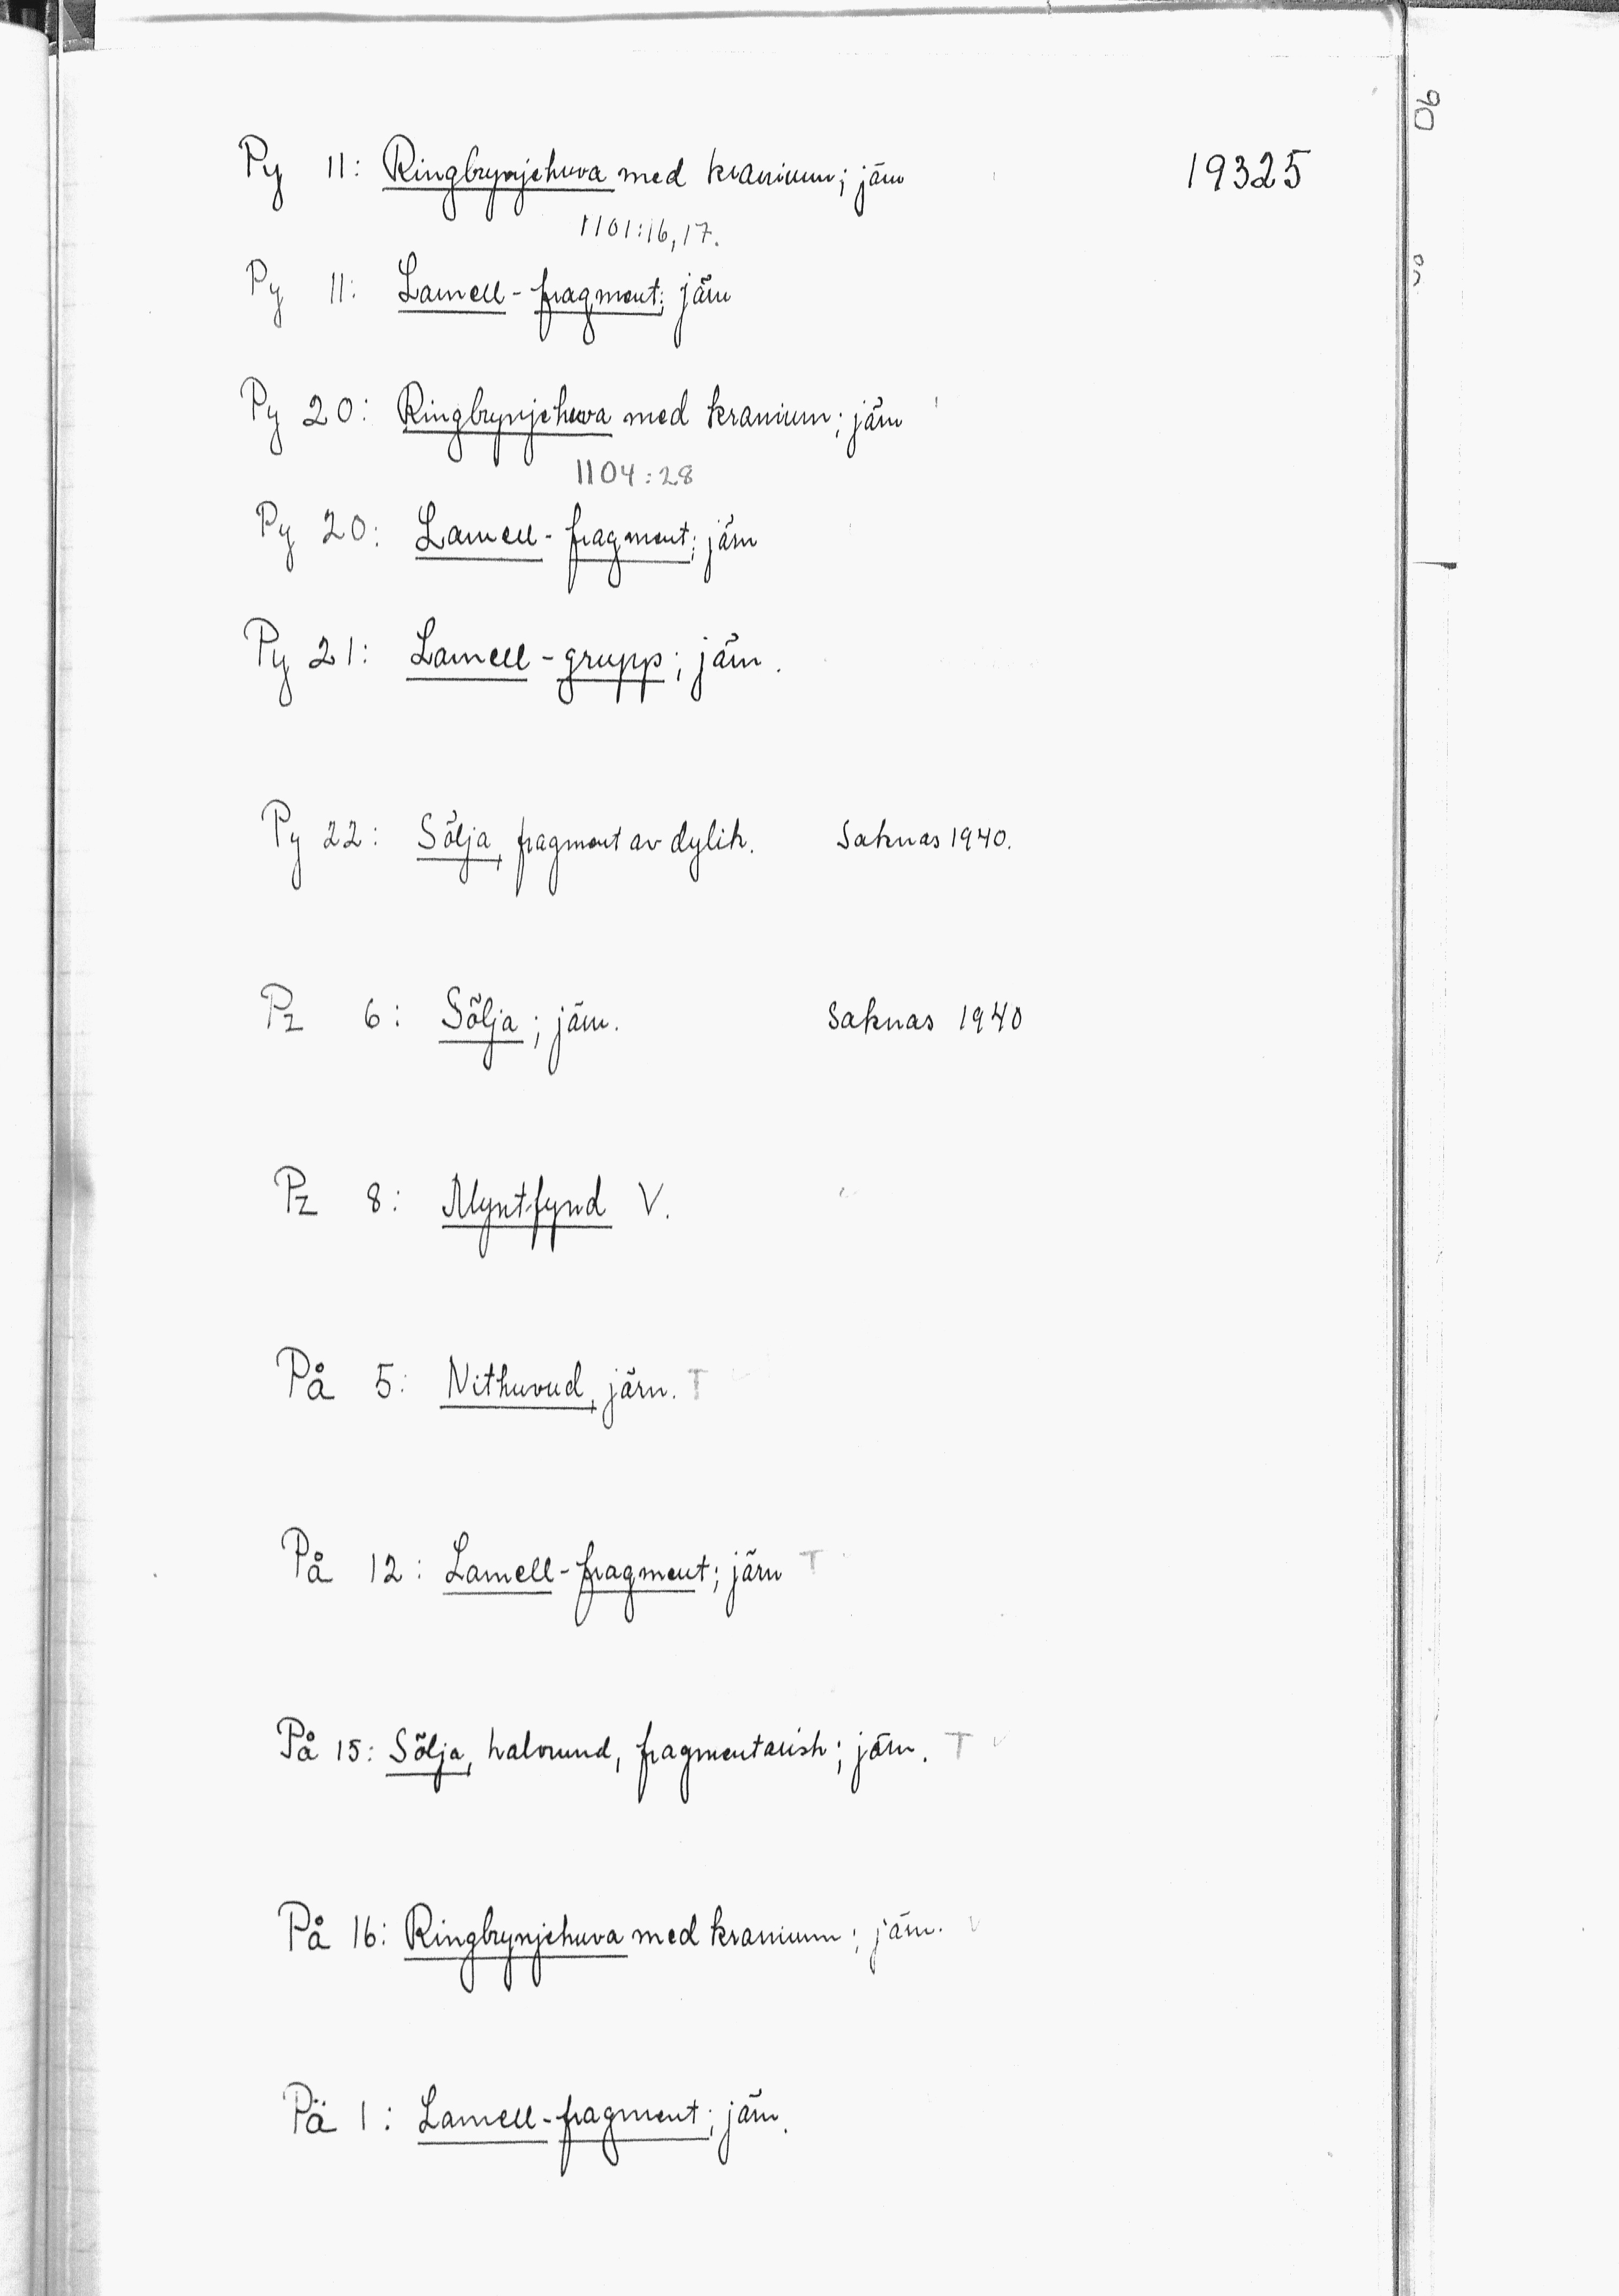 Py 11: Ringbrynjehuva med kranium; järn 19325
1101:16, 17.
Py 11: Lamell-fragment; järn
Py 20: Ringbrynjehuva med kranium; järn
1104:28
Py 20: Lamell-fragment; järn
Py 21: Lamell-grupp; järn.
Py 22: Sölja, fragment av dylik. Saknas 1940.
Pz 6: Sölja; järn. Saknas 1940
Pz 8: Myntfynd V.
På 5: Nithuvud, järn. T
På 12: Lamell-fragment; järn T
På 15: Sölja, halvrund, fragmentarisk; järn. T
På 16: Ringbrynjehuva med kranium; järn.
Pä 1: Lamell-fragment; järn.
90